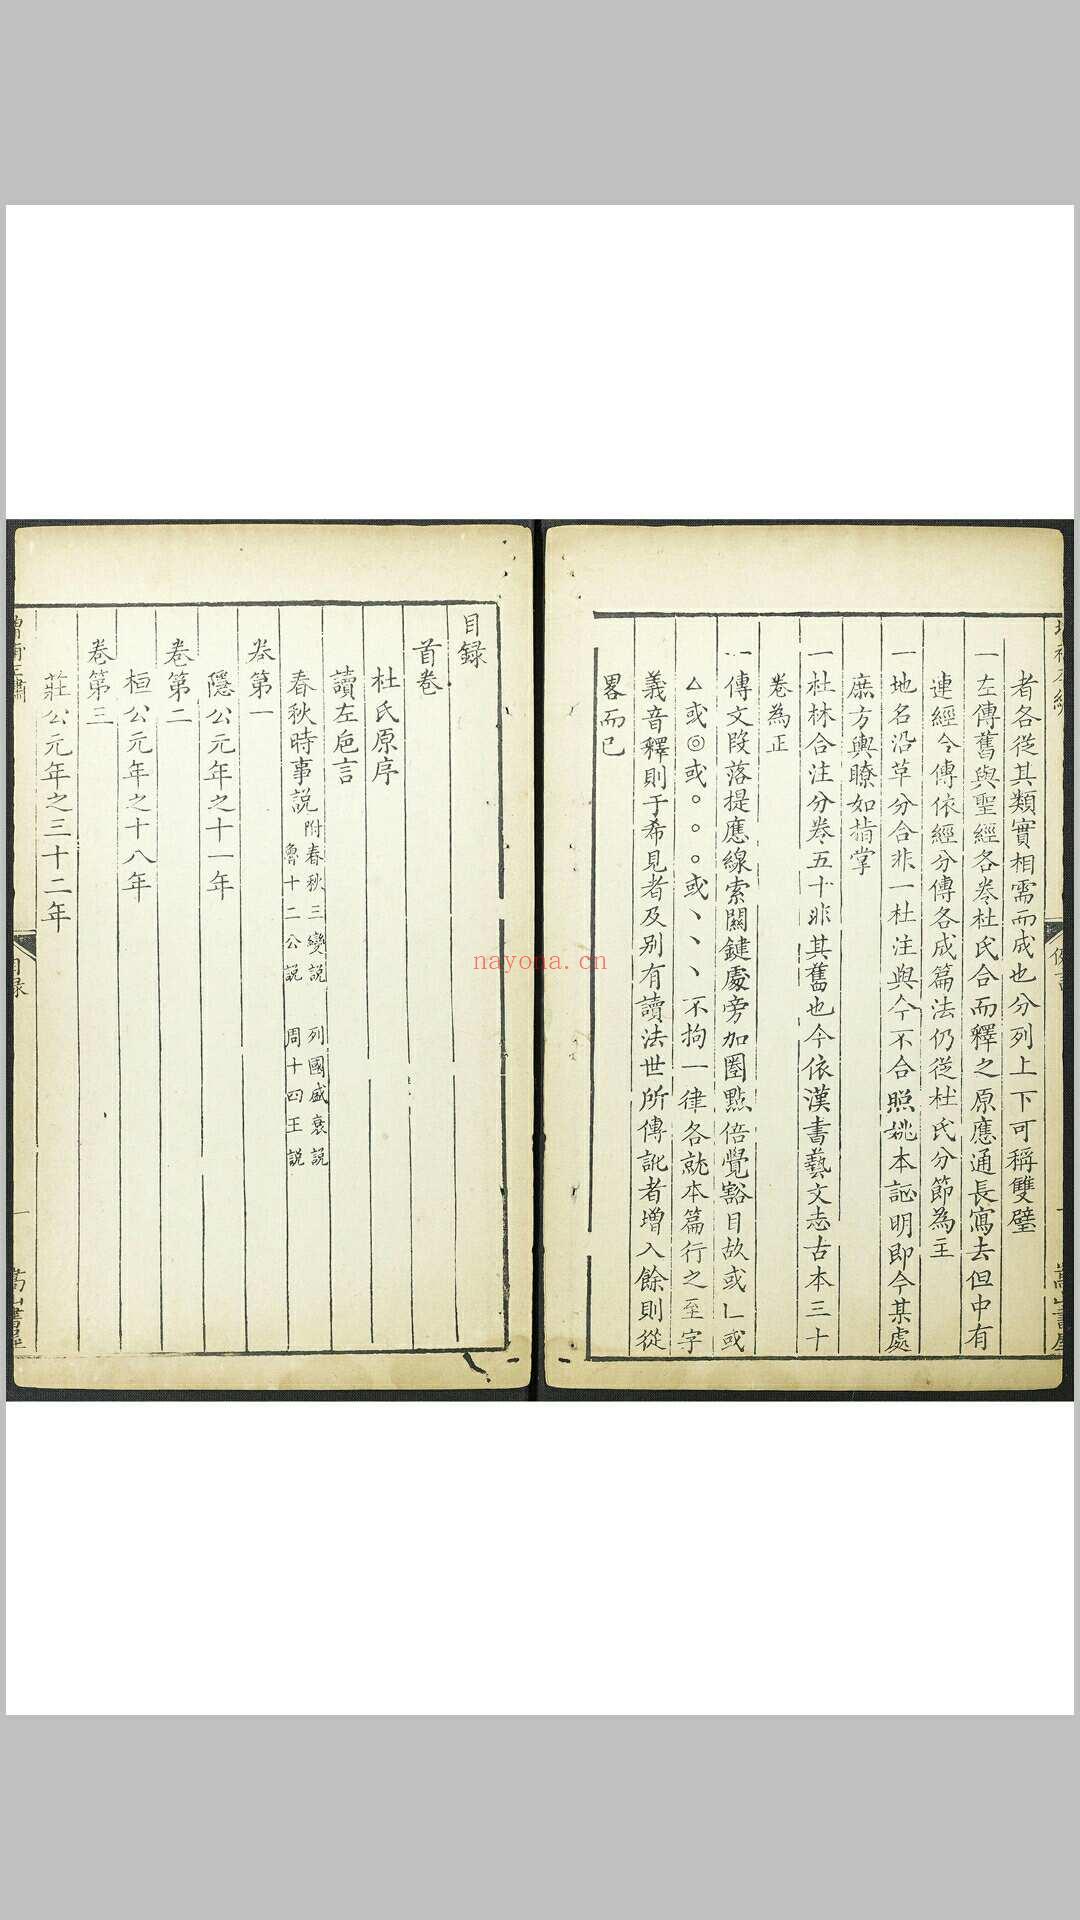 者各從其類實相需而成也分列上下可稱雙璧
一左傳舊與聖經各卷杜氏合而釋之原應通長寫去但中有
連經今傳依經分傳各成篇法仍從杜氏分節為主
一地名沿革分合非一杜注與今不合照姚本証明即今某處
庶方輿瞭如指掌
一杜林合注分卷五十非其舊也今依漢書藝文志古本三十
卷為正
一傳文段落提應線索關鍵處旁加圈點倍覺豁目故或乚或
△或◎或。。。或丶丶丶不拘一律各就本篇行之至字
義音釋則于希見者及别有讀法世所傳訛者增入餘則從
畧而已
目録
首卷
杜氏原序
讀左巵言
春秋時事説附春秋三變説 列國盛衰説
魯十二公説 周十四王説
卷第一
隱公元年之十一年
卷第二
桓公元年之十八年
卷第三
莊公元年之三十二年
目録
一
嵩山書屋
nayona.cn